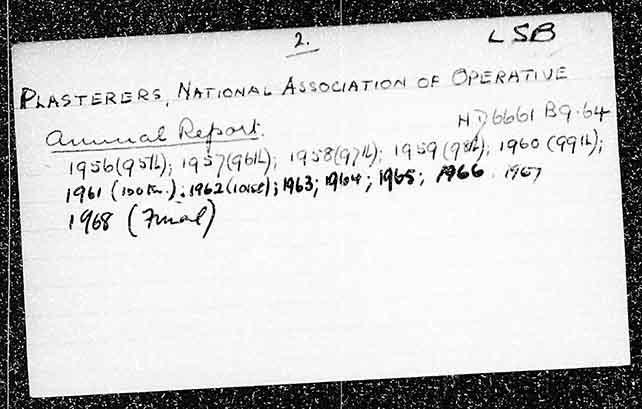 2. LSB
PLASTERERS, NATIONAL ASSOCIATION OF OPERATIVE
HD6661 B9.64
Annual Report.
1956(95th); 1957(96th); 1958(97th); 1959(98th); 1960(99th);
1961 (100th). 1962(101st); 1963; 1964; 1965; 1966. 1967
1968 (Final)